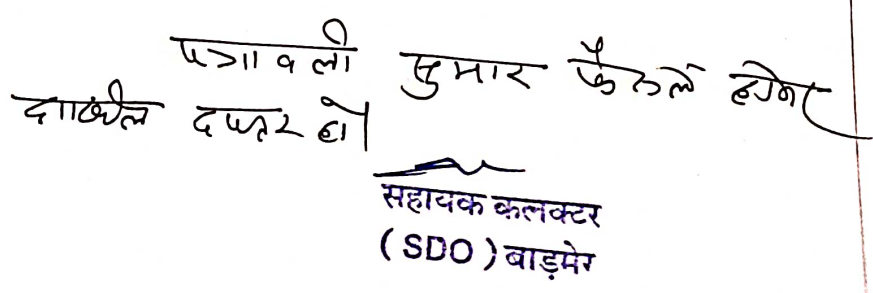 पत्रावली सुमार फैसले होकर
दाखील दफ्तर हो।
सहायक कलक्टर
(SDO) बाड़मेर